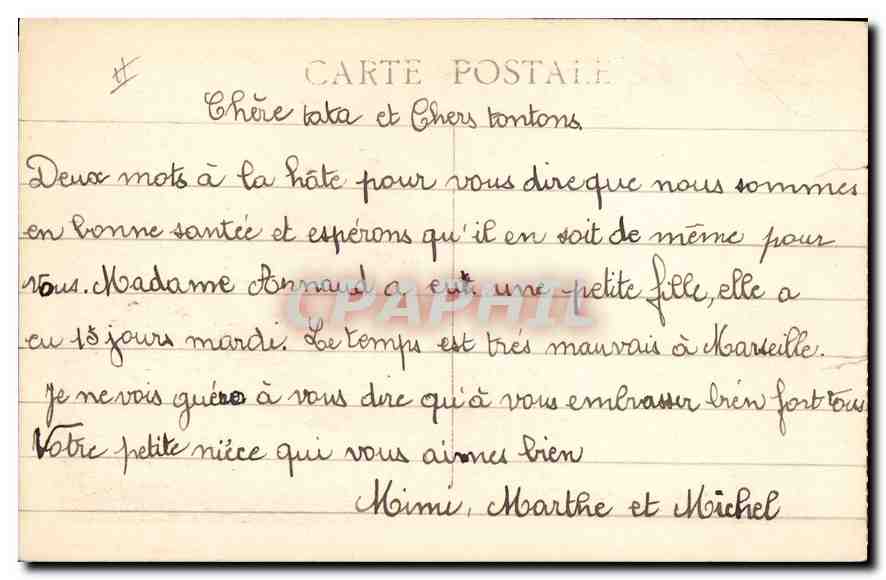 CARTE POSTALE
Chère tata et Chers tontons
Deux mots à la hâte pour vous dire que nous sommes
en bonne santée et espérons qu'il en soit de même pour
vous. Madame Arnaud a eut une petite fille, elle a
CPAPHIL
eu 15 jours mardi. Le temps est trés mauvais à Marseille.
Je ne vois guére à vous dire qu'à vous embrasser bien fort tous
Votre petite nièce qui vous aimes bien
Mimi, Marthe et Michel